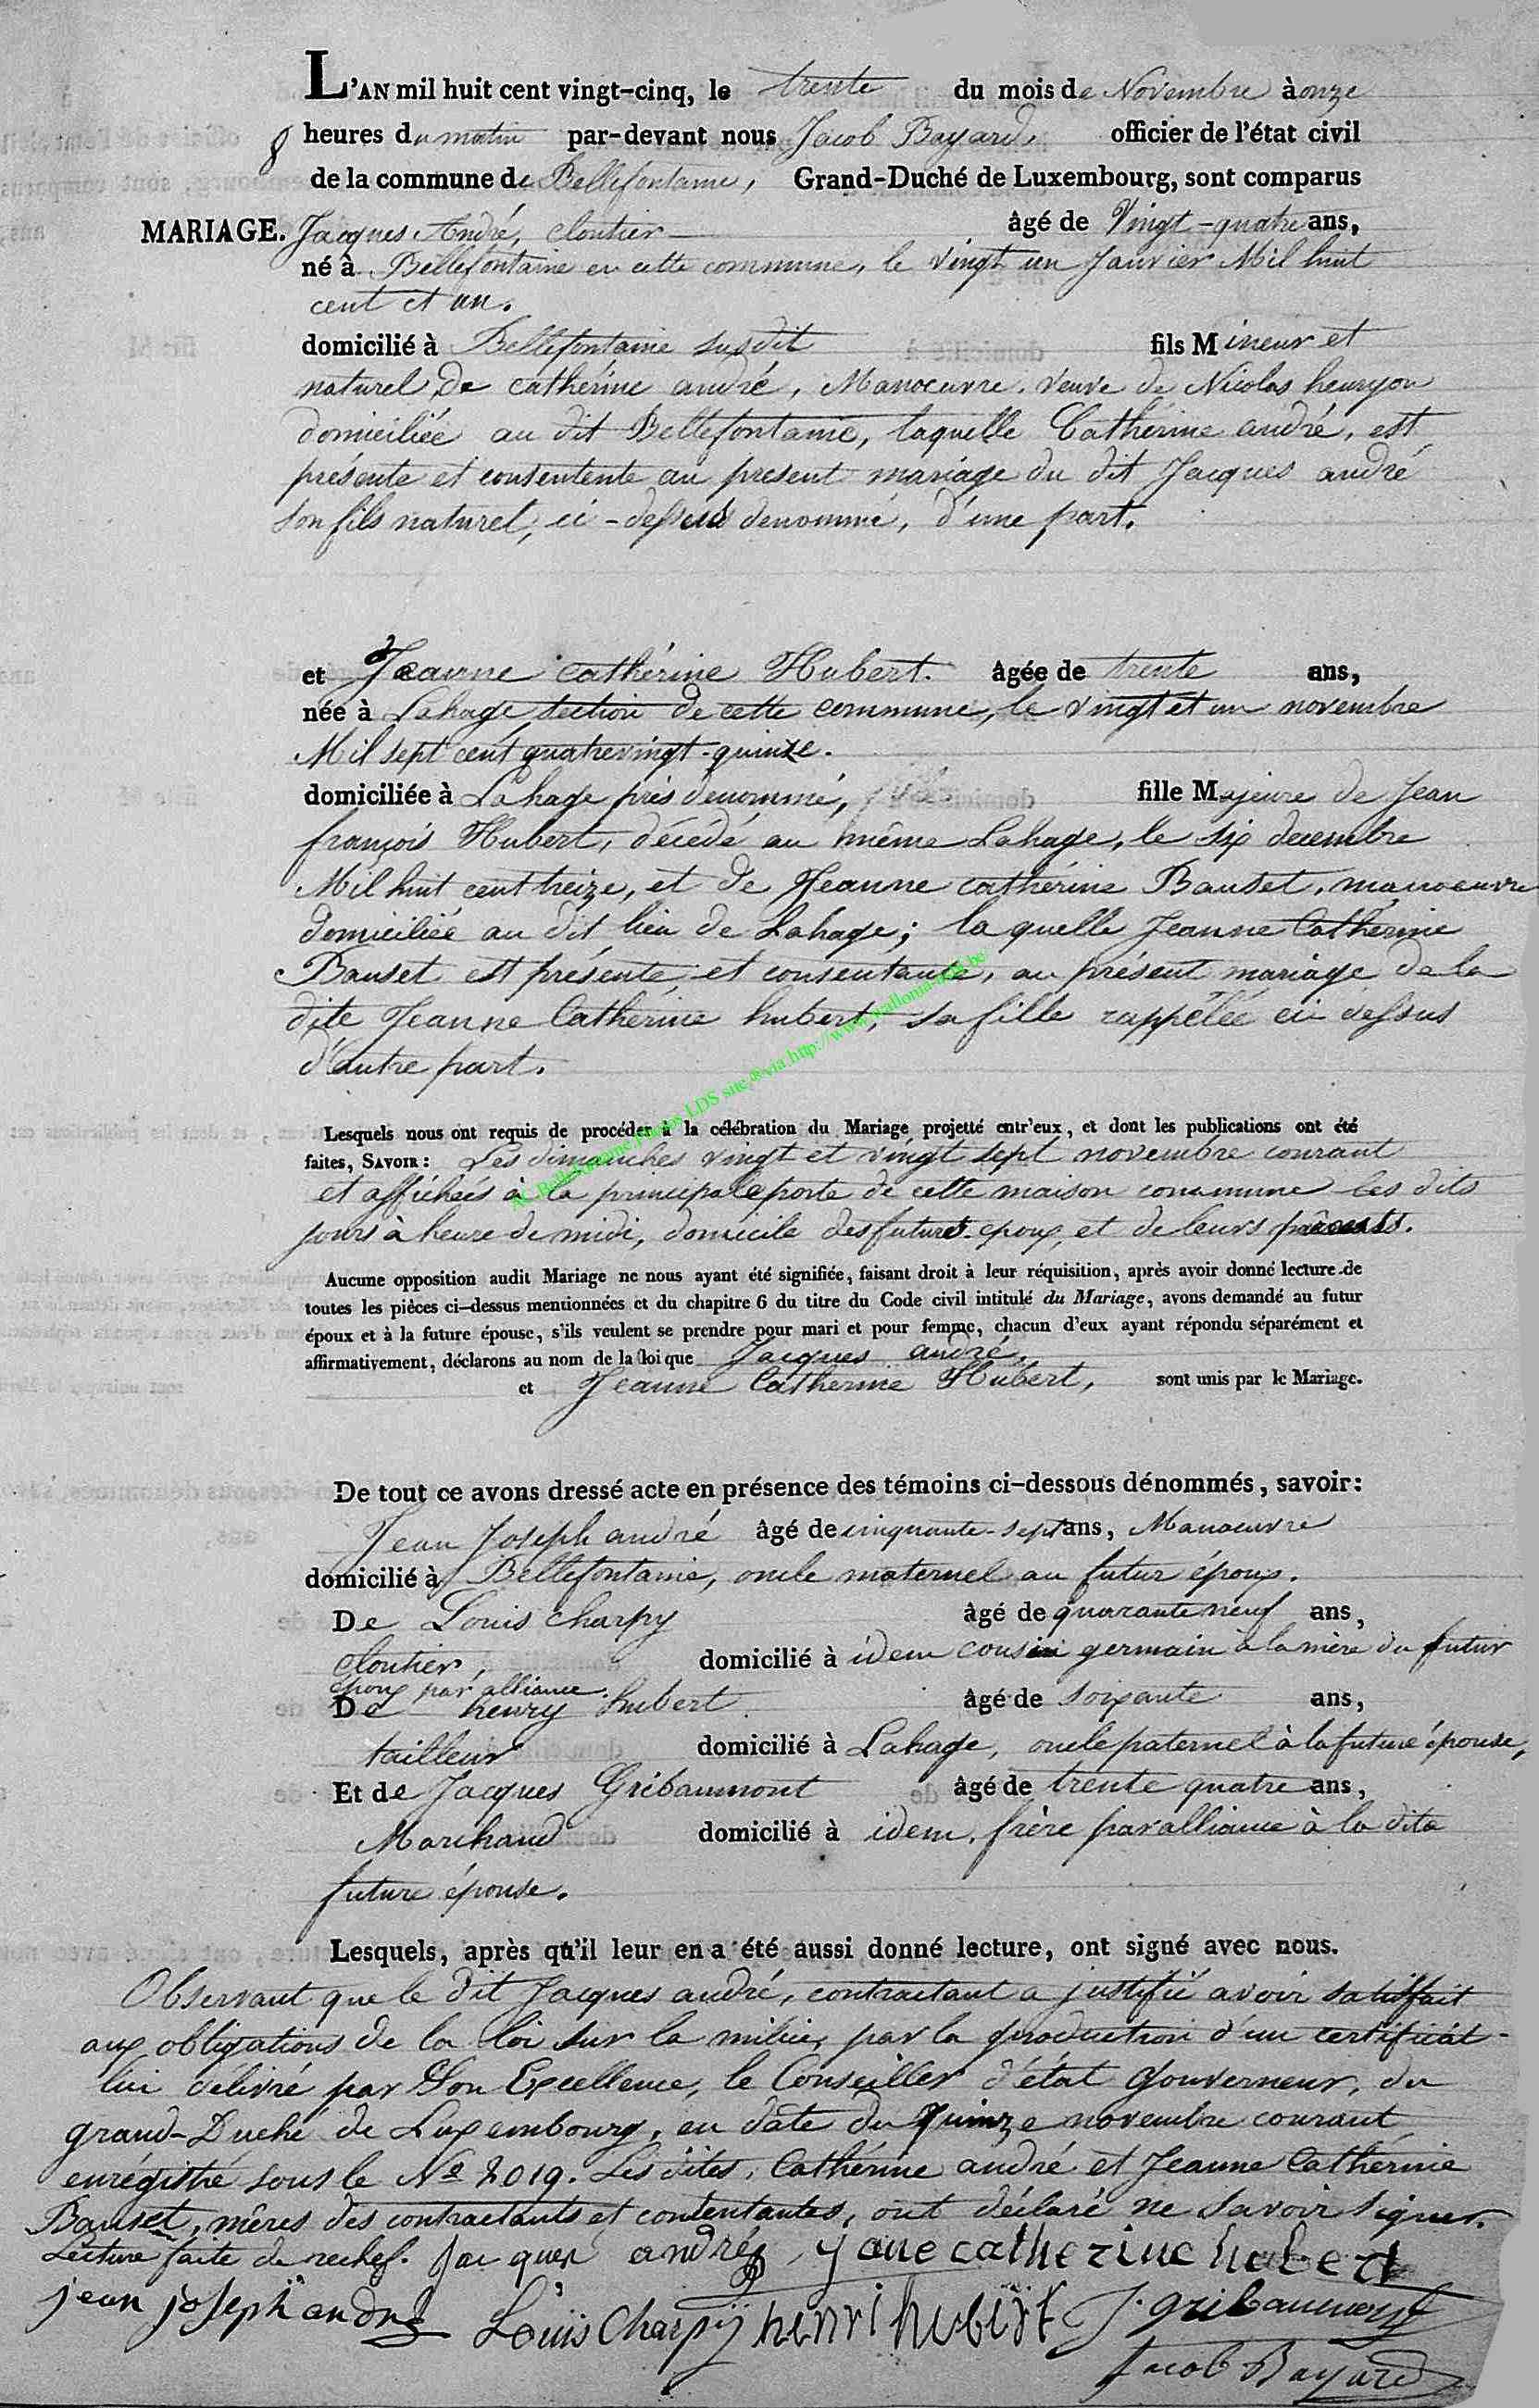 L'AN mil huit cent vingt-cinq, le trente du mois de Novembre à onze
8 heures du matin par-devant nous Jacob Bayard, officier de l'état civil
de la commune de Bellefontaine, Grand-Duché de Luxembourg, sont comparus
MARIAGE. Jacques André, cloutier âgé de Vingt-quatre ans,
né à Bellefontaine en cette commune, le vingt un Janvier Mil huit
cent et un.
domicilié à Bellefontaine susdit fils Mineur et
naturel de cathérine andré, Manoeuvre, veuve de Nicolas henryon
domiciliée au dit Bellefontaine, laquelle Cathérine andré, est
présente et consentente au present mariage du dit Jacques andré
son fils naturel, ci-dessus denommé, d'une part.
et Jeanne cathérine Hubert. âgée de trente ans,
née à Lahage section de cette commune, le vingt et un novembre
Mil sept cent quatrevingt-quinze.
domiciliée à Lahage près denommé, fille Majeure de Jean
françois Hubert, décédé au même Lahage, le six decembre
Mil huit cent treize, et de Jeanne cathérine Bauset, manoeuvre
domiciliée au dit lieu de Lahage; la quelle Jeanne Cathérine
Bauset est présente et consentante, au présent mariage de la
dite Jeanne Cathérine hubert, sa fille rappélée ci dessus
d'autre part.
Lesquels nous ont requis de procéder à la célébration du Mariage projetté entr'eux, et dont les publications ont été
faites, SAVOIR: Les dimanches vingt et vingt sept novembre courant
et affichées à la principale porte de cette maison commune les dits
jours à heure de midi, domicile des futurs epoux, et de leurs parents.
Aucune opposition audit Mariage ne nous ayant été signifiée, faisant droit à leur réquisition, après avoir donné lecture de
toutes les pièces ci-dessus mentionnées et du chapitre 6 du titre du Code civil intitulé du Mariage, avons demandé au futur
époux et à la future épouse, s'ils veulent se prendre pour mari et pour femme, chacun d'eux ayant répondu séparément et
affirmativement, déclarons au nom de la loi que Jacques andré,
et Jeanne Catherine Hubert, sont unis par le Mariage.
De tout ce avons dressé acte en présence des témoins ci-dessous dénommés, savoir:
Jean Joseph andré âgé de cinquante-sept ans, Manoeuvre
domicilié à Bellefontaine, oncle maternel au futur époux.
De Louis Charpy âgé de quarante neuf ans,
cloutier, domicilié à idem cousin germain à la mère du futur
époux par alliance.
De henry hubert âgé de soixante ans,
tailleur domicilié à Lahage, oncle paternel à la future épouse,
Et de Jacques Gribaumont âgé de trente quatre ans,
Marchand domicilié à idem, frère par alliance à la dite
future épouse.
Lesquels, après qu'il leur en a été aussi donné lecture, ont signé avec nous.
Observant que le dit Jacques andré, contractant a justifié avoir satisfait
aux obligations de la loi sur la milice, par la production d'un certificat
lui délivré par Son Excellence, le Conseiller d'état Gouverneur, du
grand-Duché de Luxembourg, en date du quinze novembre courant
enrégistré sous le No 2019. Les dites, Cathérine andré et Jeanne Cathérine
Bauset, mères des contractants et contentantes, ont déclaré ne savoir signer.
Lecture faite de rechef. jacques andré jane catherine hubert
jean joseph andré Louis Charpÿ henri hubert J. gribaumont
Jacob Bayard